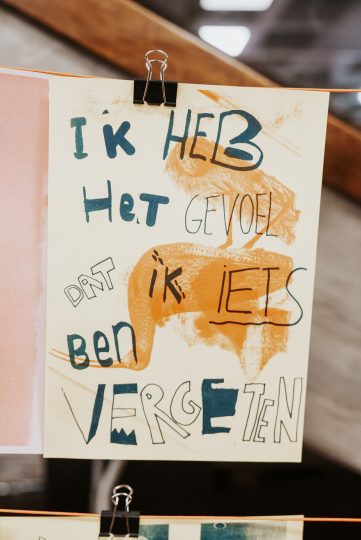 IK HEB
HeT GEVOEL
DAT iK iETS
BEN
VERGETEN